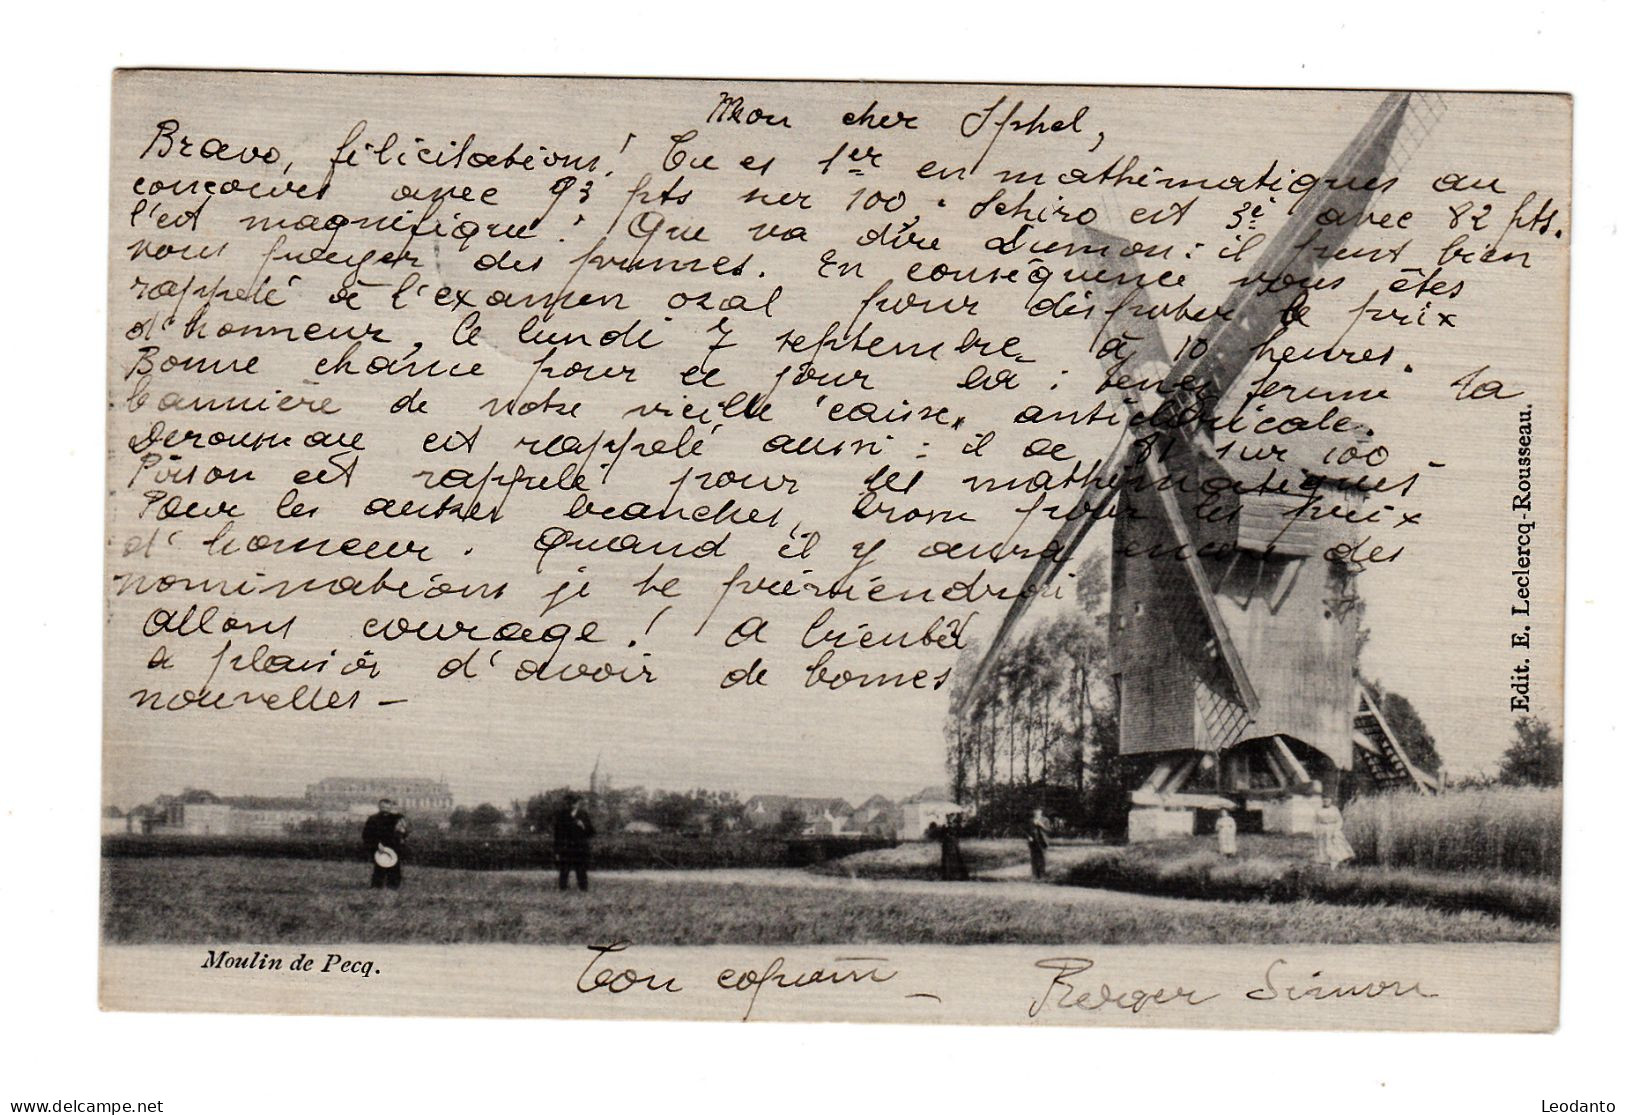 Mon cher Iphel,
Bravo, félicitations! Tu es 1er en mathématiques au
concours avec 93 pts sur 100. Schiro est 3e avec 82 pts.
C'est magnifique! Que va dire Dumon: il peut bien
vous payer des prunes. En conséquence vous êtes
rappelé à l'examen oral pour disputer le prix
d'honneur, le lundi 7 septembre à 10 heures.
Bonne chance pour ce jour là: tenez ferme la
bannière de notre vieille "caisse" anticléricale.
est rappelé aussi: il a 81 sur 100
Pirson est rappelé pour les mathématiques
Pour les autres branches, pour les prix
d'honneur. Quand il y aura encore des
nominations je te préviendrai
Allons courage! A bientôt
le plaisir d'avoir de bonnes
nouvelles —
Edit. E. Leclercq-Rousseau.
Moulin de Pecq.
Ton copain —
Roger Simon
https://www.delcampe.net
Leodanto